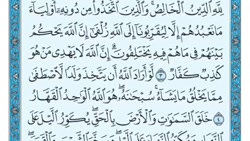 لِلَّهِ ٱلدِّينُ ٱلْخَالِصُ وَٱلَّذِينَ ٱتَّخَذُوا۟ مِن دُونِهِۦٓ أَوْلِيَآءَ
مَا نَعْبُدُهُمْ إِلَّا لِيُقَرِّبُونَآ إِلَى ٱللَّهِ زُلْفَىٰٓ إِنَّ ٱللَّهَ يَحْكُمُ
بَيْنَهُمْ فِى مَا هُمْ فِيهِ يَخْتَلِفُونَ إِنَّ ٱللَّهَ لَا يَهْدِى مَنْ هُوَ
كَٰذِبٌ كَفَّارٌ ٣ لَّوْ أَرَادَ ٱللَّهُ أَن يَتَّخِذَ وَلَدًا لَّٱصْطَفَىٰ
مِمَّا يَخْلُقُ مَا يَشَآءُ سُبْحَٰنَهُۥ هُوَ ٱللَّهُ ٱلْوَٰحِدُ ٱلْقَهَّارُ
٤ خَلَقَ ٱلسَّمَٰوَٰتِ وَٱلْأَرْضَ بِٱلْحَقِّ يُكَوِّرُ ٱلَّيْلَ عَلَى